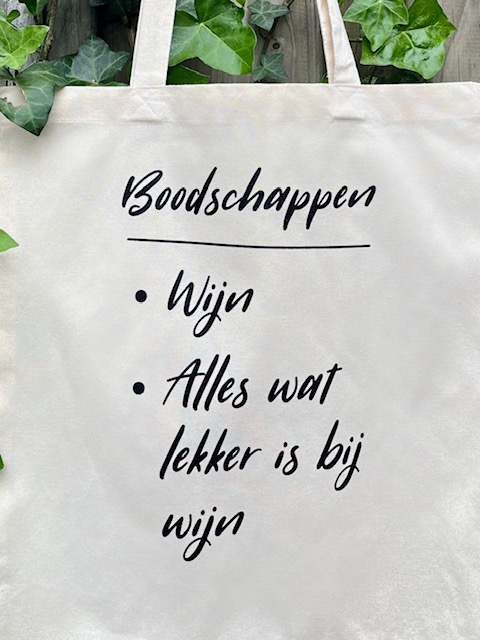 Boodschappen
• Wijn
• Alles wat
lekker is bij
wijn